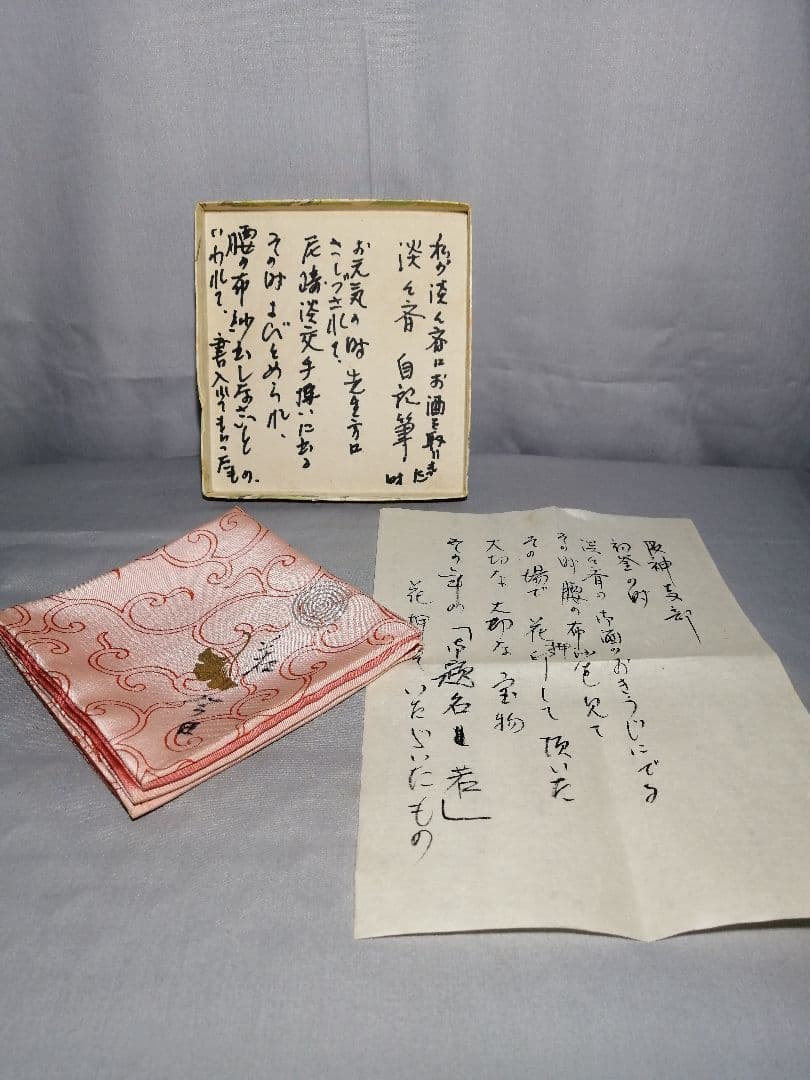 私が淡々斎にお酒を取いました時
淡々斎 自記筆
お元気の時先生方に
さしづされて、
尼崎淡交手摶いに出る
その時よびとめられ、
腰の布紗出しなさいと
いわれて、書入れてもらったもの。
阪神支部
初釜の時
淡々斎の御酒のおきうじにでる
その時腰の布紗を見て
その場で花押して頂いた
大切な大切な宝物
その年の「御題名 若」
花押をいただいたもの
若